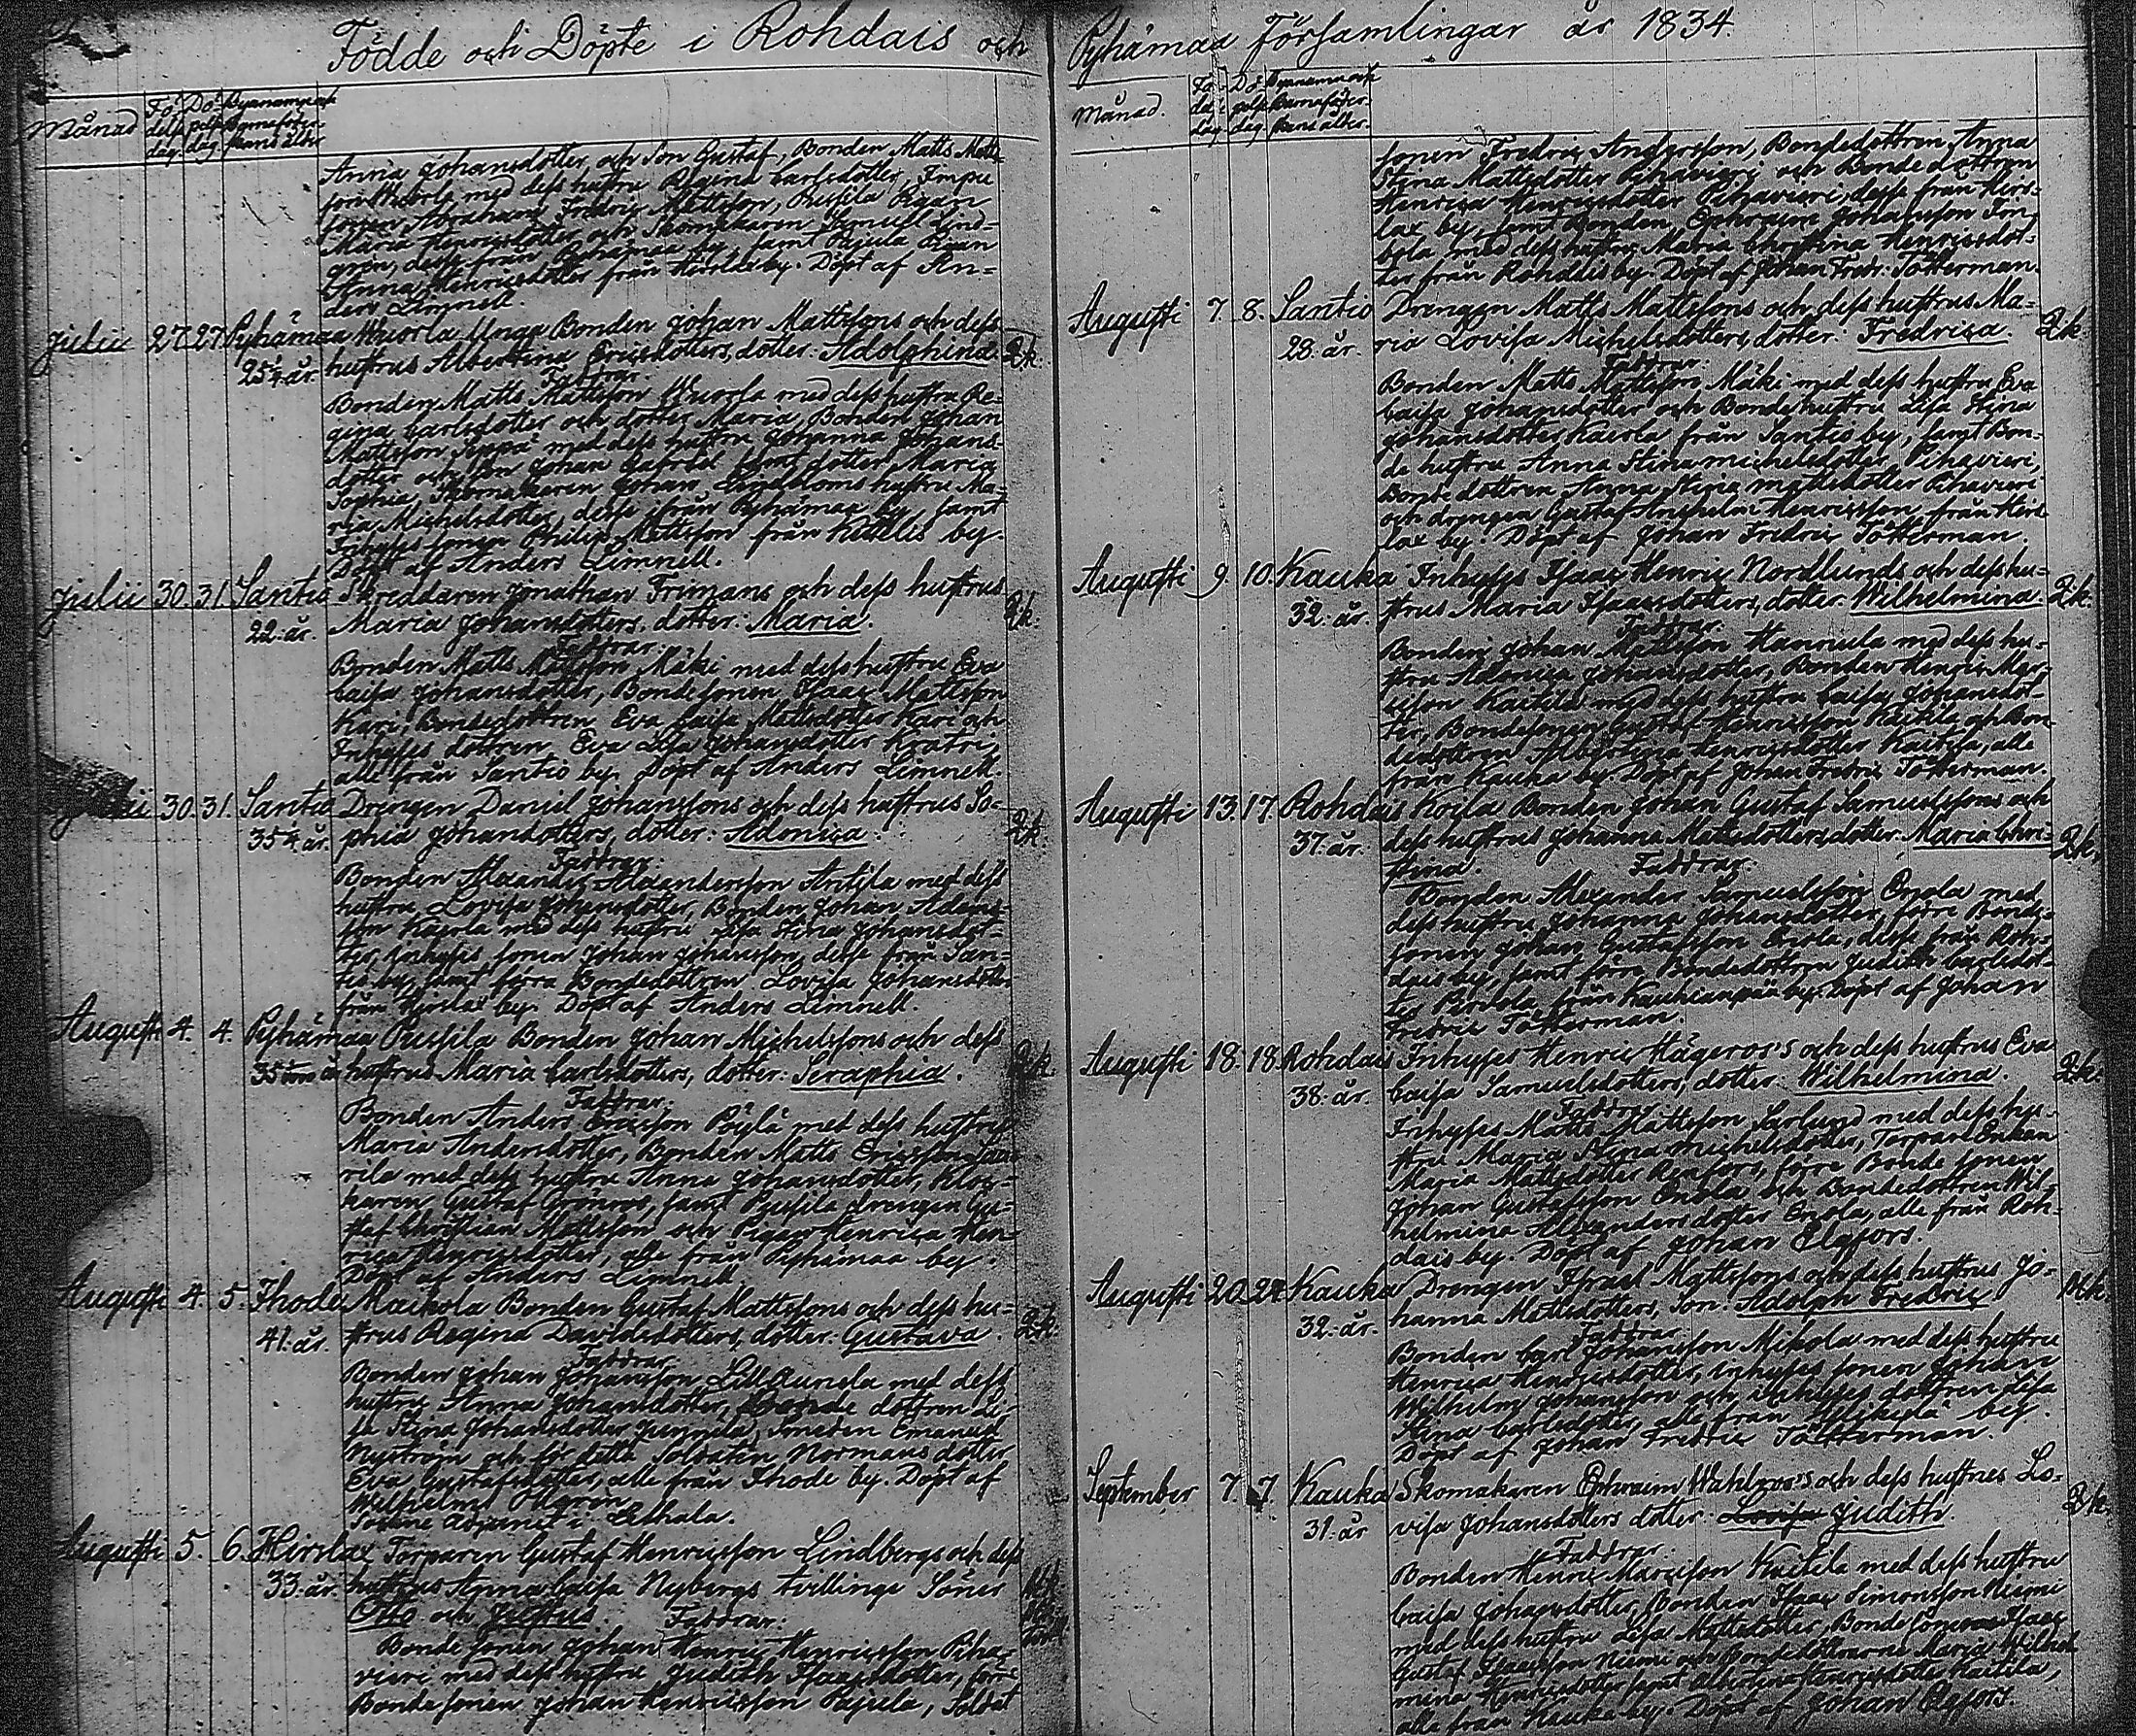 Födde och Döpte i Rohdais och
Månad Fö- Dö- Byanamn och
delse pelse Barnaföder-
dag. dag. skans ålder
Anna Johansdotter och Son Gustaf, Bonden Matts Matts-
son Wuorla med dess hustru Regina Carlsdotter, Impu
sonen Abraham Fredric Mattsson, Prusila Pigan
Maria Henricsdotter och Skomakaren Samuel Lind-
gren, desse från Pyhämaa by, samt Pajula Pigan
Anna Henricsdotter från Hirslax by. Döpt af An-
ders Limnell.
Julii 27. 27. Pyhämaa Wuorla Unga Bonden Johan Mattssons och dess
25 1/4 år. hustrus Albertina Ericsdotters, dotter: Adolphina. Qk.
Faddrar
Bonden Matts Mattsson Wuorla med dess hustru Re-
gina Carlsdotter och dotter Maria, Bonden Johan
Mattsson Seppä med dess hustru Johanna Johans-
dotter och Son Johan Gabriel samt dotter Maria
Sophia, Skomakaren Johan Lindholms hustru Ma-
ria Michelsdotter, desse från Pyhämaa by, samt
Inhyses sonen Philip Mattsson från Kettelis by.
Döpt af Anders Limnell.
Julii 30. 31. Santio Skreddaren Jonathan Frimans och dess hustrus
22. år. Maria Johansdotters, dotter: Maria. Qk.
Faddrar
Bonden Matts Mattsson Mäki med dess hustru Eva
Caisa Johansdotter, Bondesonen Isaac Mattsson
Kari, Bondedottren Eva Caisa Mattsdotter Kari och
Inhyses dottren Eva Lisa Johansdotter Kratri,
alle från Santio by. Döpt af Anders Limnell.
30. 31. Santio Drengen Daniel Johanssons och dess hustrus So-
35 1/4 år. phia Johansdotters, dotter: Adonica. Qk.
Faddrar.
Bonden Alexander Alexandersson Antila med dess
hustru Lovisa Johansdotter, Bonden Johan Adams-
son Kaurla med dess hustru Lisa Stina Johansdot-
ter, inhyses sonen Johan Johansson, desse från San-
tio by, samt förra Bondedottren Lovisa Johansdotter
från Hirslax by. Döpt af Anders Limnell.
Augusti 4. 4. Pyhämaa Prusila Bonden Johan Michelssons och dess
35 år hustrus Maria Carlsdotters, dotter: Seraphia. Qk.
Faddrar.
Bonden Anders Ericsson Pöylä med dess hustru
Maria Andersdotter, Bonden Matts Ericsson
rila med dess hustru Anna Johansdotter, Kloc-
karen Gustaf Grönroos, samt Prusila drengen Gu-
staf Christian Mattsson och Pigan Henrica Hen-
ricsdotter, alle från Pyhämaa by.
Döpt af Anders Limnell.
Augusti 4. 5. Ihode Maikola Bonden Gustaf Mattssons och dess hu-
41. år. strus Regina Davidsdotters, dotter: Gustava. Qk.
Faddrar.
Bonden Johan Johansson Lill Aunela med dess
hustru Anna Johansdotter, Bonde dottren Li-
sa Stina Johansdotter Junnila, Smeden Emanuel
Nyström och för detta Soldaten Normans dotter
Eva Gustafsdotter, alle från Ihode by. Döpt af
Wilhelm Olgren
Sockne Adjunct i Lethala.
Augusti 5. 6. Hirslax Torparen Gustaf Henricsson Lindbergs och dess
33. år. hustrus Anna Caisa Nybergs tvillinge Söner
Otto och Justus. Faddrar.
Bonde sonen Johan Henric Henricsson Piha-
vieri med dess hustru Judith Isaacsdotter, förre
Bonde sonen Johan Henricsson Pajula, Soldat
Pyhämaa Församlingar år 1834.
Månad. Fö- Dö- Byanamn och
del- pelse Barnaföder-
dag. dag. skans ålder.
sonen Fredric Andersson, Bondedottren Anna
Stina Mattsdotter Pihavieri och Bonde dottren
Henrica Henricsdotter Pihavieri, desse från Hirs-
lax by, samt Bonden Ephraim Johansson Jon-
bola med dess hustru Maria Christina Henricsdot-
ter från Rohdais by. Döpt af Johan Fredr. Tötterman.
Augusti 7. 8. Santio Drengen Matts Mattssons och dess hustrus Ma-
28. år. ria Lovisa Michelsdotters, dotter: Fredrica. Qk.
Faddrar.
Bonden Matts Mattsson Mäki med dess hustru Eva
Caisa Johansdotter och Bondehustru Lisa Stina
Johansdotter Kaurla från Santio by, samt Bon-
de hustru Anna Stina Michelsdotter Pihavieri,
Bonde dottren Anna Stina Mattsdotter Pihavieri
och drengen Gustaf Anshelm Henricsson från Hirs-
lax by. Döpt af Johan Fredric Tötterman.
Augusti 9. 10. Kauka Inhyses Isaac Henric Nordlunds och dess hu-
32. år. strus Maria Isaacsdotters, dotter: Wilhelmina. Qk.
Faddrar.
Bonden Johan Mattsson Hannula med dess hu-
stru Adonica Johansdotter, Bonden Henric Mar-
cusson Kaitila med dess hustru Caisa Johansdot-
ter, Bondesonen Gustaf Henricsson Kaitila och Bon-
dedottren Albertina Henricsdotter Kaitila, alle
från Kauka by. Döpt af Johan Fredric Tötterman.
Augusti 13. 17. Rohdais Koila Bonden Johan Gustaf Samuelssons och
37. år. dess hustrus Johanna Mattsdotters, dotter: Maria Chri-
stina. Faddrar. Qk.
Bonden Alexander Samuelsson Onola med
dess hustru Johanna Johansdotter, förre Bonde-
sonen Johan Gustafsson Onola, desse från Roh-
dais by, samt förra Bondedottren Judith Carlsdot-
ter Perkola från Kauhianpää by. Döpt af Johan
Fredric Tötterman.
Augusti 18. 18. Rohdais Inhyses Henric Hägeros's och dess hustrus Eva
38. år. Caisa Samuelsdotters, dotter: Wilhelmina. Qk.
Faddrar
Inhyses Matts Mattsson Sarlund med dess hu-
stru Maria Stina Michelsdotter, Torpare Enkan
Maria Mattsdotter Renfors, förre Bonde sonen
Johan Gustafsson Onola och Bondedottren Wil-
helmina Alexandersdotter Onola, alle från Roh-
dais by. Döpt af Johan Elgfors.
Augusti 20. 24. Kauka Drengen Israel Mattssons och dess hustrus Jo-
32. år. hanna Mattsdotters, Son: Adolph Fredric
Faddrar
Bonden Carl Johansson Mikola med dess hustru
Henrica Henricsdotter, inhyses sonen Johan
Wilhelm Johansson och inhyses dottren Lisa
Stina Carlsdotter, alle från Ylikylä by.
Döpt af Johan Fredric Tötterman.
September 7. 7. Kauka Skomakaren Ephraim Wahlroos's och dess hustrus Lo-
31. år visa Johansdotters dotter: Lovisa Judith. Qk.
Faddrar.
Bonden Henric Marcusson Kaitila med dess hustru
Caisa Johansdotter, Bonden Isaac Simonsson Niemi
med dess hustru Lisa Mattsdotter, Bonde Sonen Isaac
Gustaf Isaacsson Niemi och Bondedöttrarna Maria Wilhel-
mina Henricsdotter samt Albertina Henricsdotter Kaitila,
alle från Kauka by. Döpt af Johan Elgfors.